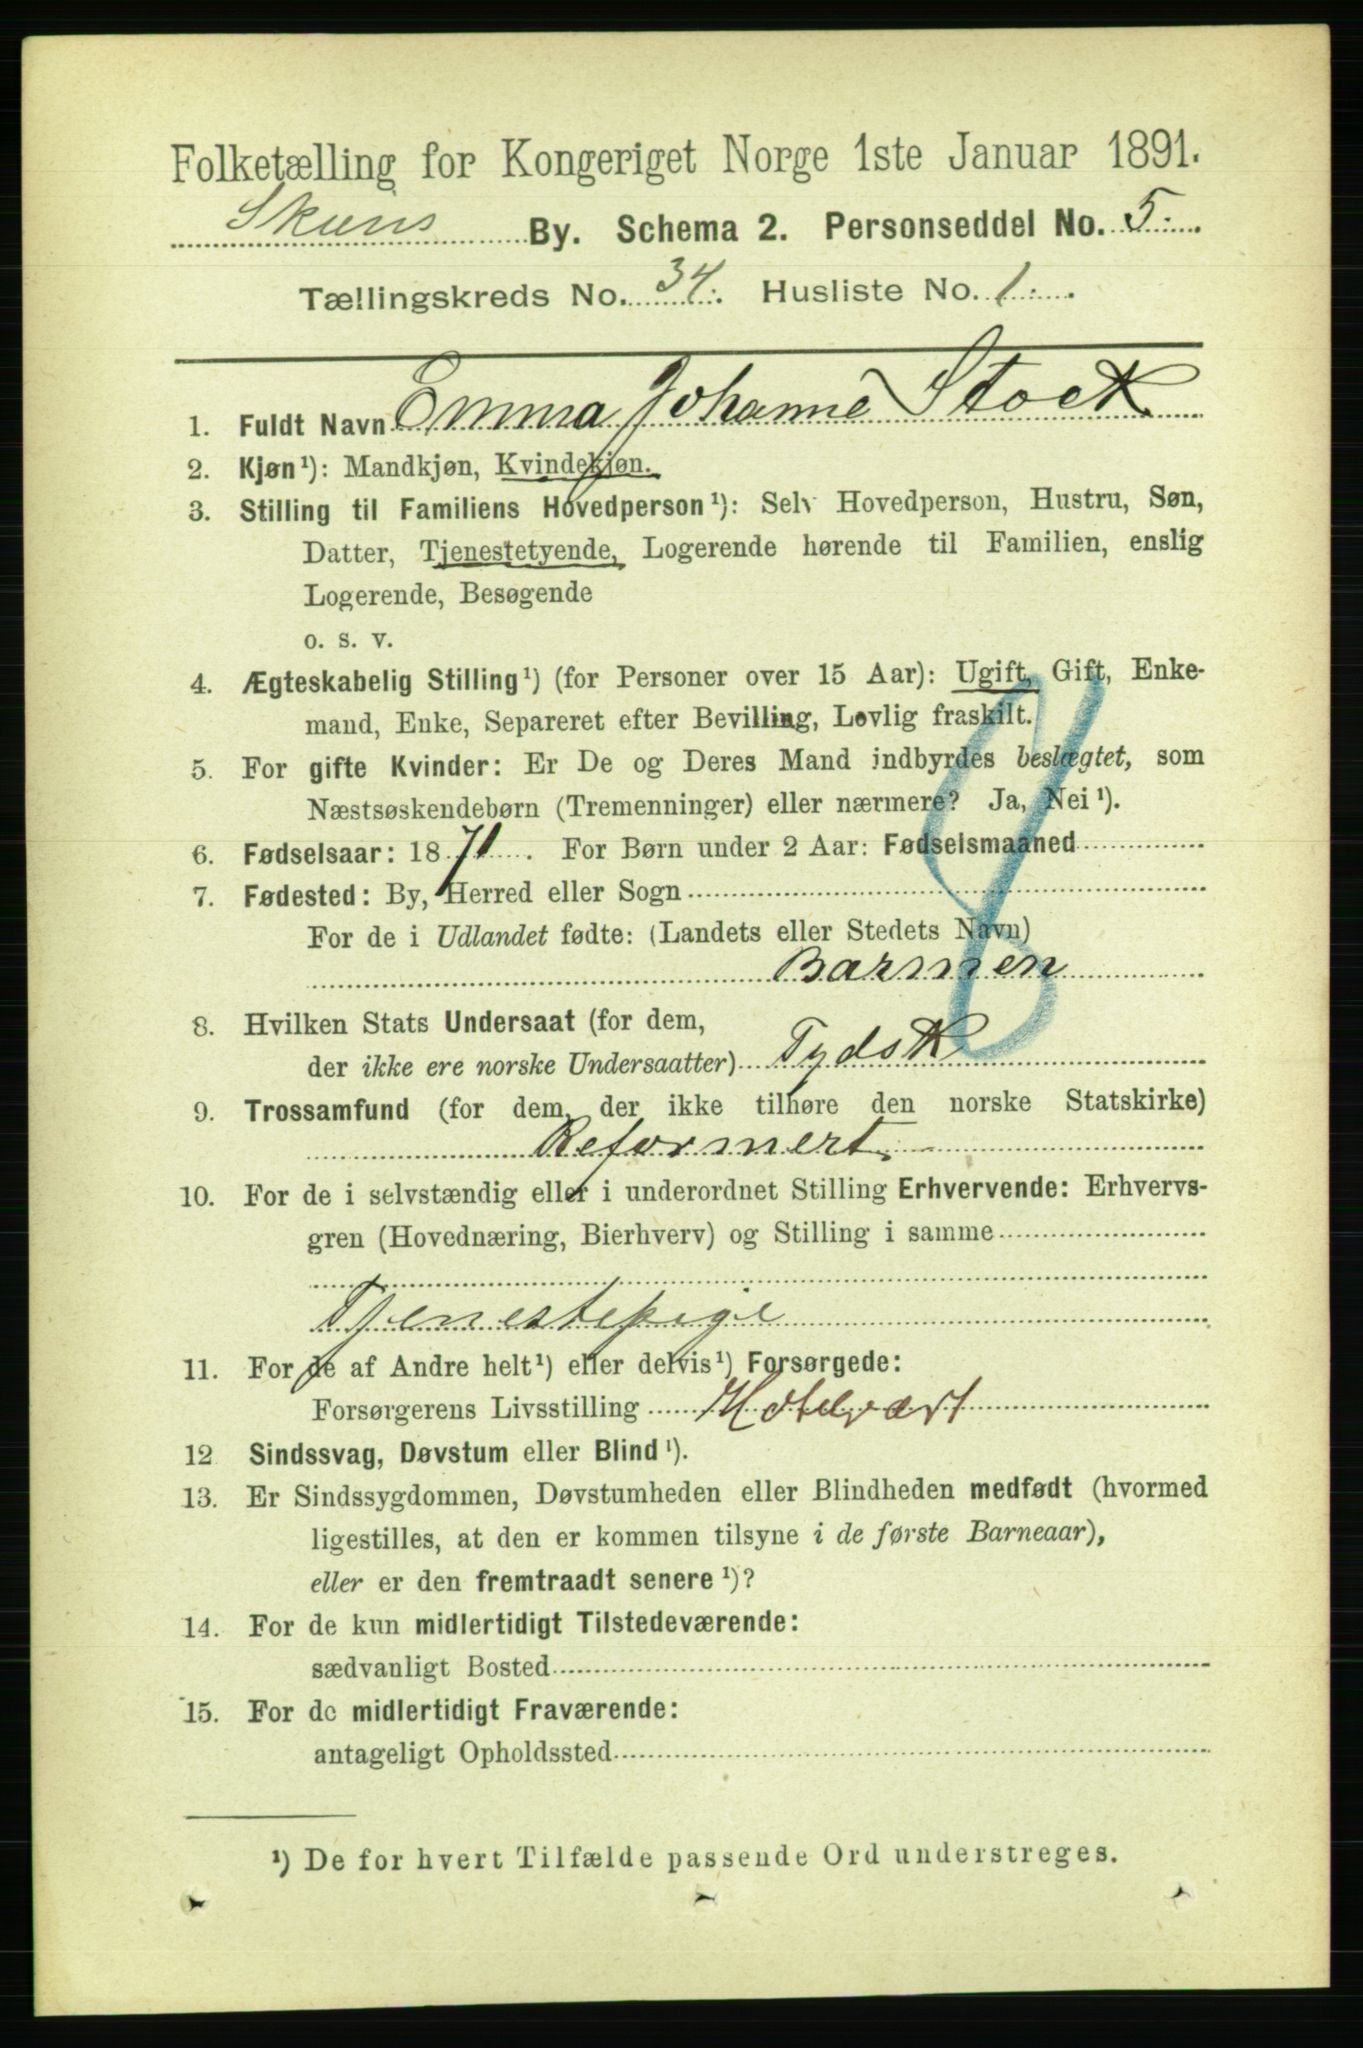 Folketælling for Kongeriget Norge 1ste Januar 1891.
Skiens By. Schema 2. Personseddel No. 5.
Tællingskreds No. 34. Husliste No. 1.
1. Fuldt Navn Emma Johanne Stock
2. Kjøn¹): Mandkjøn, Kvindekjøn.
3. Stilling til Familiens Hovedperson¹): Selv Hovedperson, Hustru, Søn,
Datter, Tjenestetyende, Logerende hørende til Familien, enslig
Logerende, Besøgende
o. s. v.
4. Ægteskabelig Stilling¹) (for Personer over 15 Aar): Ugift, Gift, Enke-
mand, Enke, Separeret efter Bevilling, Lovlig fraskilt.
5. For gifte Kvinder: Er De og Deres Mand indbyrdes beslægtet, som
Næstsøskendebørn (Tremenninger) eller nærmere? Ja, Nei¹).
6. Fødselsaar: 1871. For Børn under 2 Aar: Fødselsmaaned
7. Fødested: By, Herred eller Sogn
For de i Udlandet fødte: (Landets eller Stedets Navn)
Barmen
8. Hvilken Stats Undersaat (for dem,
der ikke ere norske Undersaatter) Tydsk
9. Trossamfund (for dem, der ikke tilhøre den norske Statskirke)
Reformert.
10. For de i selvstændig eller i underordnet Stilling Erhvervende: Erhvervs-
gren (Hovednæring, Bierhverv) og Stilling i samme
Tjenestepige
11. For de af Andre helt¹) eller delvis¹) Forsørgede:
Forsørgerens Livsstilling Hotelvært
12 Sindssvag, Døvstum eller Blind¹).
13. Er Sindssygdommen, Døvstumheden eller Blindheden medfødt (hvormed
ligestilles, at den er kommen tilsyne i de første Barneaar),
eller er den fremtraadt senere¹)?
14. For de kun midlertidigt Tilstedeværende:
sædvanligt Bosted
15. For de midlertidigt Fraværende:
antageligt Opholdssted
¹) De for hvert Tilfælde passende Ord understreges.